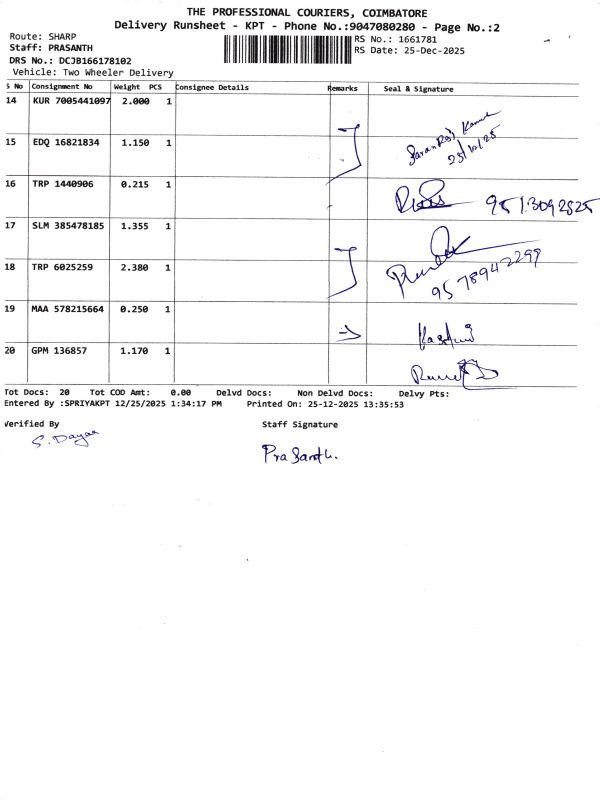 THE PROFESSIONAL COURIERS, COIMBATORE
Delivery Runsheet - KPT - Phone No.:9047080280 - Page No.:2
Route: SHARP
RS No.: 1661781
Staff: PRASANTH
RS Date: 25-Dec-2025
DRS No.: DCJB166178102
Vehicle: Two Wheeler Delivery
S No Consignment No Weight PCS Consignee Details Remarks Seal & Signature
14 KUR 7005441097 2.000 1
15 EDQ 16821834 1.150 1
25/12/25
16 TRP 1440906 0.215 1
9513092525
17 SLM 385478185 1.355 1
18 TRP 6025259 2.380 1
9578942299
19 MAA 578215664 0.250 1
20 GPM 136857 1.170 1
Tot Docs: 20 Tot COD Amt: 0.00 Delvd Docs: Non Delvd Docs: Delvy Pts:
Entered By :SPRIYAKPT 12/25/2025 1:34:17 PM Printed On: 25-12-2025 13:35:53
Verified By Staff Signature
S. Dayaa
Prasanth.